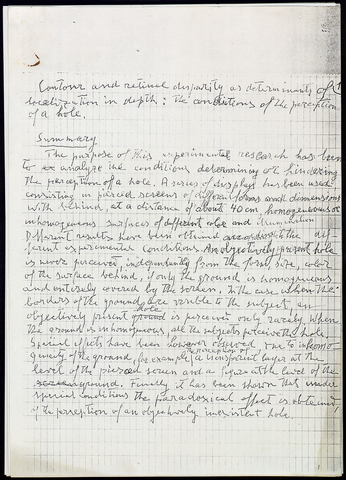 Contour and retinal disparity as determinants of
localization in depth: the conditions of the perception
of a hole.
Summary
The purpose of this experimental research has been
to analyze the conditions determining or hindering
the perception of a hole. A series of displays has been used
consisting in pierced screens of different forms and dimensions
with behind, at a distance of about 40 cm, homogeneous or
inhomogeneous surfaces of different color and
Different results have been obtained according to the dif-
ferent experimental conditions. An objectively present hole
is never perceived, independently from the form, size, color
of the surface behind, if only the ground is homogeneous
and entirely covered by the screen. In the case when the
borders of the ground are visible to the subject, an
objectively present hole is perceived only rarely. When
the ground is inhomogeneous, all the subjects perceive the hole.
Special effects have been however observed due to inhomo-
geneity of the ground, for example the perception of a transparent layer at the
level of the pierced screen and a figure at the level of the
ground. Finally, it has been shown that under
special conditions the paradoxical effect is obtained,
of the perception of an objectively inexistent hole